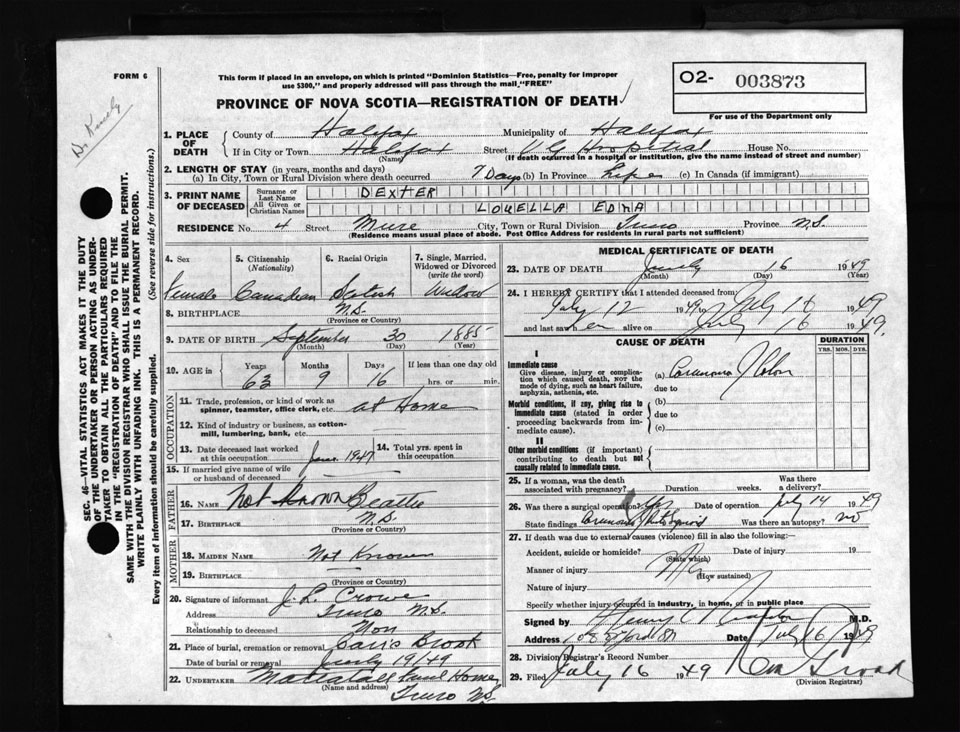 FORM 6
This form if placed in an envelope, on which is printed "Dominion Statistics—Free, penalty for improper
use $300," and properly addressed will pass through the mail "FREE"
O2- 003873
PROVINCE OF NOVA SCOTIA—REGISTRATION OF DEATH
For use of the Department only
1. PLACE OF DEATH County of Halifax Municipality of Halifax
If in City or Town Halifax (Name) Street V G Hospital House No.
(If death occurred in a hospital or institution, give the name instead of street and number)
2. LENGTH OF STAY (in years, months and days)
(a) In City, Town or Rural Division where death occurred 7 Days (b) In Province Life (c) In Canada (if immigrant)
3. PRINT NAME OF DECEASED Surname or Last Name DEXTER
All Given or Christian Names LOUELLA EDNA
RESIDENCE No. 4 Street Muir City, Town or Rural Division Truro Province N.S.
(Residence means usual place of abode. Post Office Address for residents in rural parts not sufficient)
4. Sex 5. Citizenship (Nationality) 6. Racial Origin 7. Single, Married, Widowed or Divorced (write the word)
Female Canadian Scotch Widow
8. BIRTHPLACE N.S.
(Province or Country)
9. DATE OF BIRTH September 30 1885
(Month) (Day) (Year)
10. AGE in Years Months Days If less than one day old
63 9 16 hrs. or min.
OCCUPATION
11. Trade, profession, or kind of work as spinner, teamster, office clerk, etc. at Home
12. Kind of industry or business, as cotton-mill, lumbering, bank, etc.
13. Date deceased last worked at this occupation June 1949 14. Total yrs. spent in this occupation
15. If married give name of wife or husband of deceased
FATHER
16. NAME Not Known Beattie
17. BIRTHPLACE N.S.
(Province or Country)
MOTHER
18. MAIDEN NAME Not Known
19. BIRTHPLACE
(Province or Country)
20. Signature of informant J. L. Crowe
Address Truro N.S.
Relationship to deceased Non
21. Place of burial, cremation or removal
Date of burial or removal July 19/49
22. UNDERTAKER Mattatall Funl Home
(Name and address) Truro N.S.
MEDICAL CERTIFICATE OF DEATH
23. DATE OF DEATH July 16 1949
(Month) (Day) (Year)
24. I HEREBY CERTIFY that I attended deceased from:
July 12 1949 to July 16 1949
and last saw her alive on July 16 1949.
CAUSE OF DEATH
DURATION
YRS. MOS. DYS.
I
Immediate cause
Give disease, injury or complication which caused death, NOT the mode of dying, such as heart failure, asphyxia, asthenia, etc.
(a) Carcinoma of Colon
due to
Morbid conditions, if any, giving rise to immediate cause (stated in order proceeding backwards from immediate cause).
(b)
due to
(c)
II
Other morbid conditions (if important) contributing to death but not causally related to immediate cause.
25. If a woman, was the death associated with pregnancy? Duration weeks. Was there a delivery?
26. Was there a surgical operation? Yes Date of operation July 14 1949
State findings Carcinoma Was there an autopsy? no
27. If death was due to external causes (violence) fill in also the following:—
Accident, suicide or homicide? (State which) Date of injury 19
Manner of injury (How sustained)
Nature of injury
Specify whether injury occurred in industry, in home, or in public place
Signed by Henry M.D.
Address Date July 16 1949
28. Division Registrar's Record Number
29. Filed July 16 1949
(Division Registrar)
SEC. 46—VITAL STATISTICS ACT MAKES IT THE DUTY
OF THE UNDERTAKER OR PERSON ACTING AS UNDER-
TAKER TO OBTAIN ALL THE PARTICULARS REQUIRED
IN THE "REGISTRATION OF DEATH" AND TO FILE THE
SAME WITH THE DIVISION REGISTRAR WHO SHALL ISSUE THE BURIAL PERMIT.
WRITE PLAINLY WITH UNFADING INK. THIS IS A PERMANENT RECORD.
Every item of information should be carefully supplied. (See reverse side for instructions.)